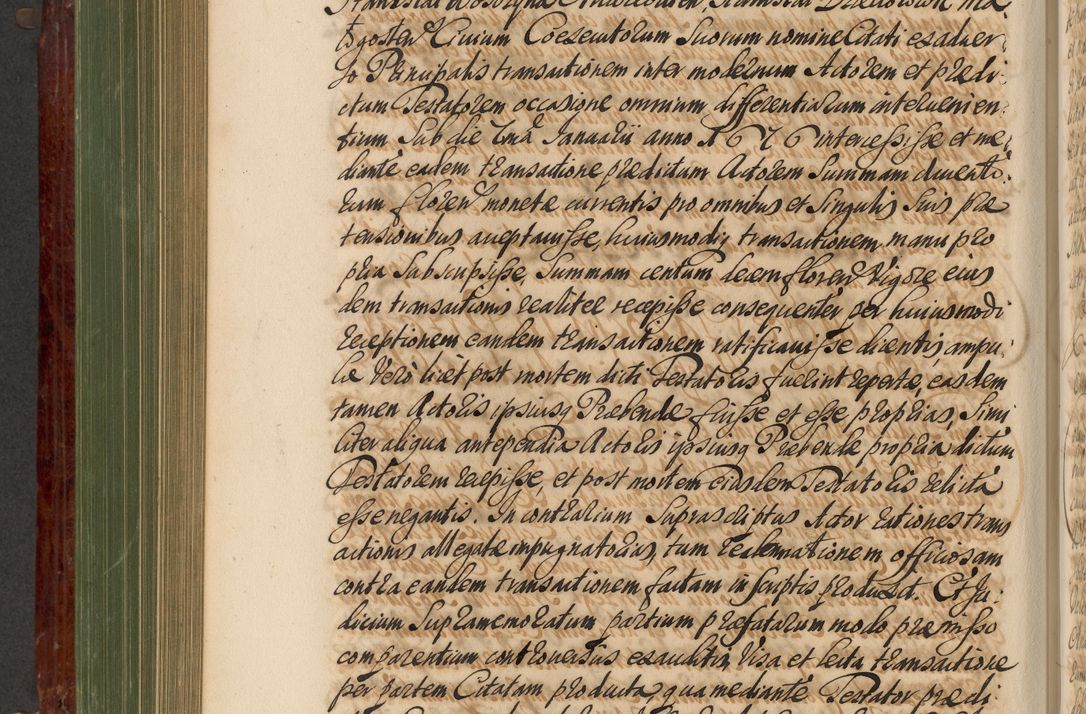 goster Civium Coexecutorum Suorum nomine Citati ex adver
so Principalis transactionem inter modernum Actorem et prædi
ctum Testatorem occasione omnium differentiarum intervenien
tium Sub die Januarii anno 1676 intercessisse et me
diante eadem transactione prædictum Actorem Summam ducento
rum floren monetæ currentis pro omnibus et Singulis Suis præ
tensionibus acceptavisse, huiusmodi transactionem manu pro
pria Subscripsisse, Summam centum decem floren Vigore eius
dem transactionis realiter recepisse consequenter per huiusmodi
receptionem eandem transactionem ratificavisse dicentis, ampu
læ Verò licet post mortem dicti Testatoris fuerint repertæ, easdem
tamen Actoris ipsiusq Præbendæ fuisse et esse proprias, Simi
liter aliqua antependia Actoris ipsiusq Præbendæ propria dictum
Testatorem recepisse, et post mortem eiusdem Testatoris relicta
esse negantis. In contrarium Suprascriptus Actor rationes trans
actionis allegatæ impugnatorias, tum reclamationem officiosam
contra eandem transactionem factam in scriptis produxit. Et Ju
dicium Supramemoratum partium præfatarum modo præmisso
comparentium controversiis exauditis, Visa et lecta transactione
per partem Citatam producta, qua mediante Testator prædi